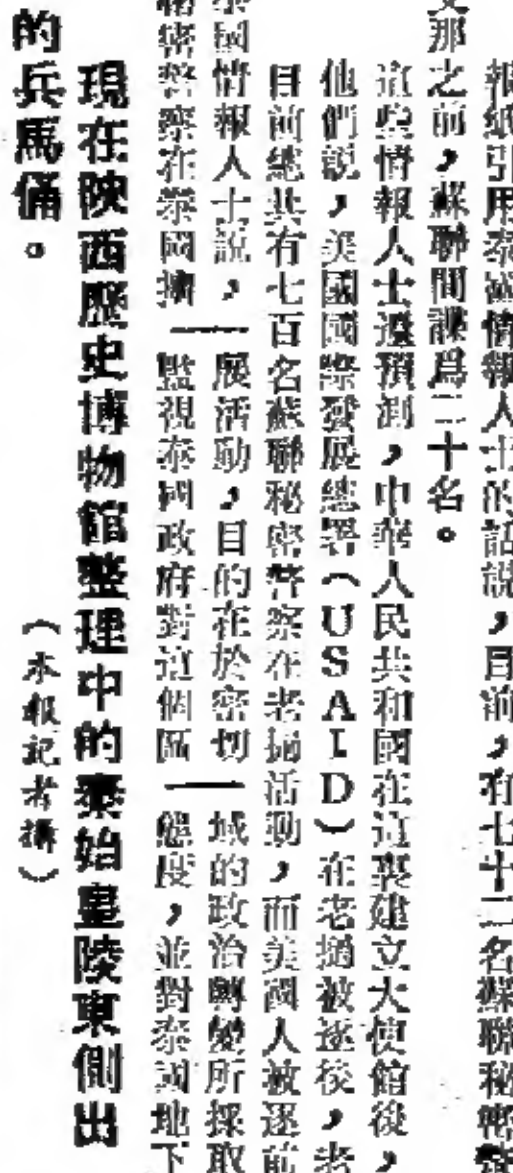 報紙引用泰國情報人士的話說，目前，有七十二名蘇聯秘密警
那之前，蘇聯間諜爲二十名。
這些情報人士還預測，中華人民共和國在這裏建立大使館後，
他們說，美國國際發展總署（USAID）在老撾被逐後，老
目前總共有七百名蘇聯秘密警察在老撾活動，而美國人被逐前
泰國情報人士說，
秘密警察在泰國擴
展活動，目的在於密切
監視泰國政府對這個區
域的政治轉變所採取
態度，並對泰國地下
現在陝西歷史博物館整理中的秦始皇陵東側出
的兵馬俑。
（本報記者攝）